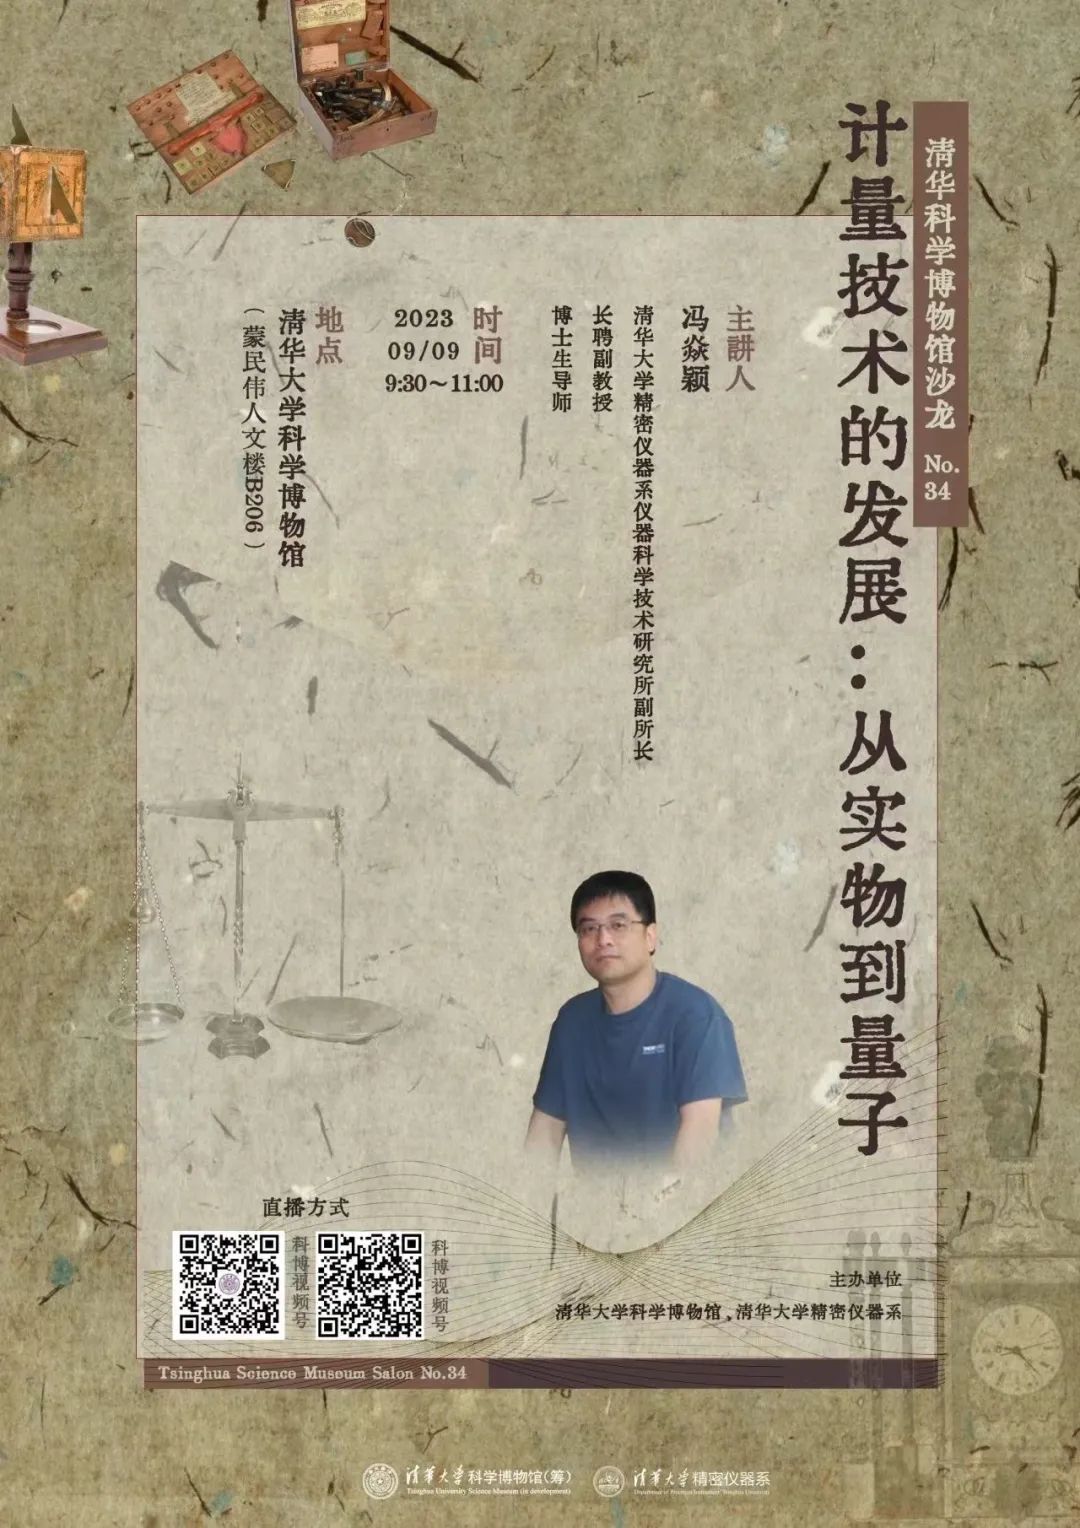 清华科学博物馆沙龙 No.34
计量技术的发展：从实物到量子
主講人
冯焱颖
清华大学精密仪器系仪器科学技术研究所副所长
长聘副教授
博士生导师
时间
2023
09/09
9:30～11:00
地点
清华大学科学博物馆
（蒙民伟人文楼B206）
直播方式
科博视频号
科博视频号
主办单位
清华大学科学博物馆、清华大学精密仪器系
Tsinghua Science Museum Salon No.34
清华大学科学博物馆(筹)
Tsinghua University Science Museum (in development)
清华大学精密仪器系
Department of Precision Instrument, Tsinghua University